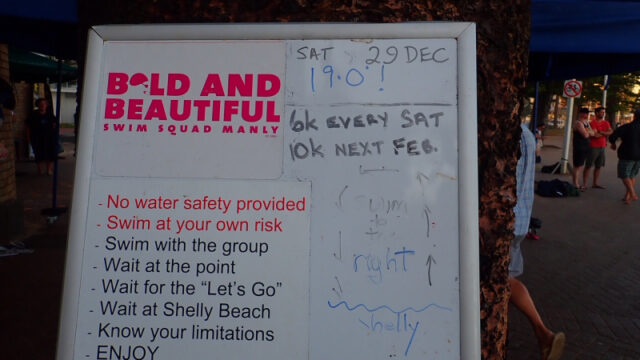 BOLD AND
BEAUTIFUL
SWIM SQUAD MANLY
SAT 29 DEC
19.0!
6K EVERY SAT
10K NEXT FEB.
- No water safety provided
- Swim at your own risk
- Swim with the group
- Wait at the point
- Wait for the "Let's Go"
- Wait at Shelly Beach
- Know your limitations
- ENJOY
swim
to
the
right
shelly